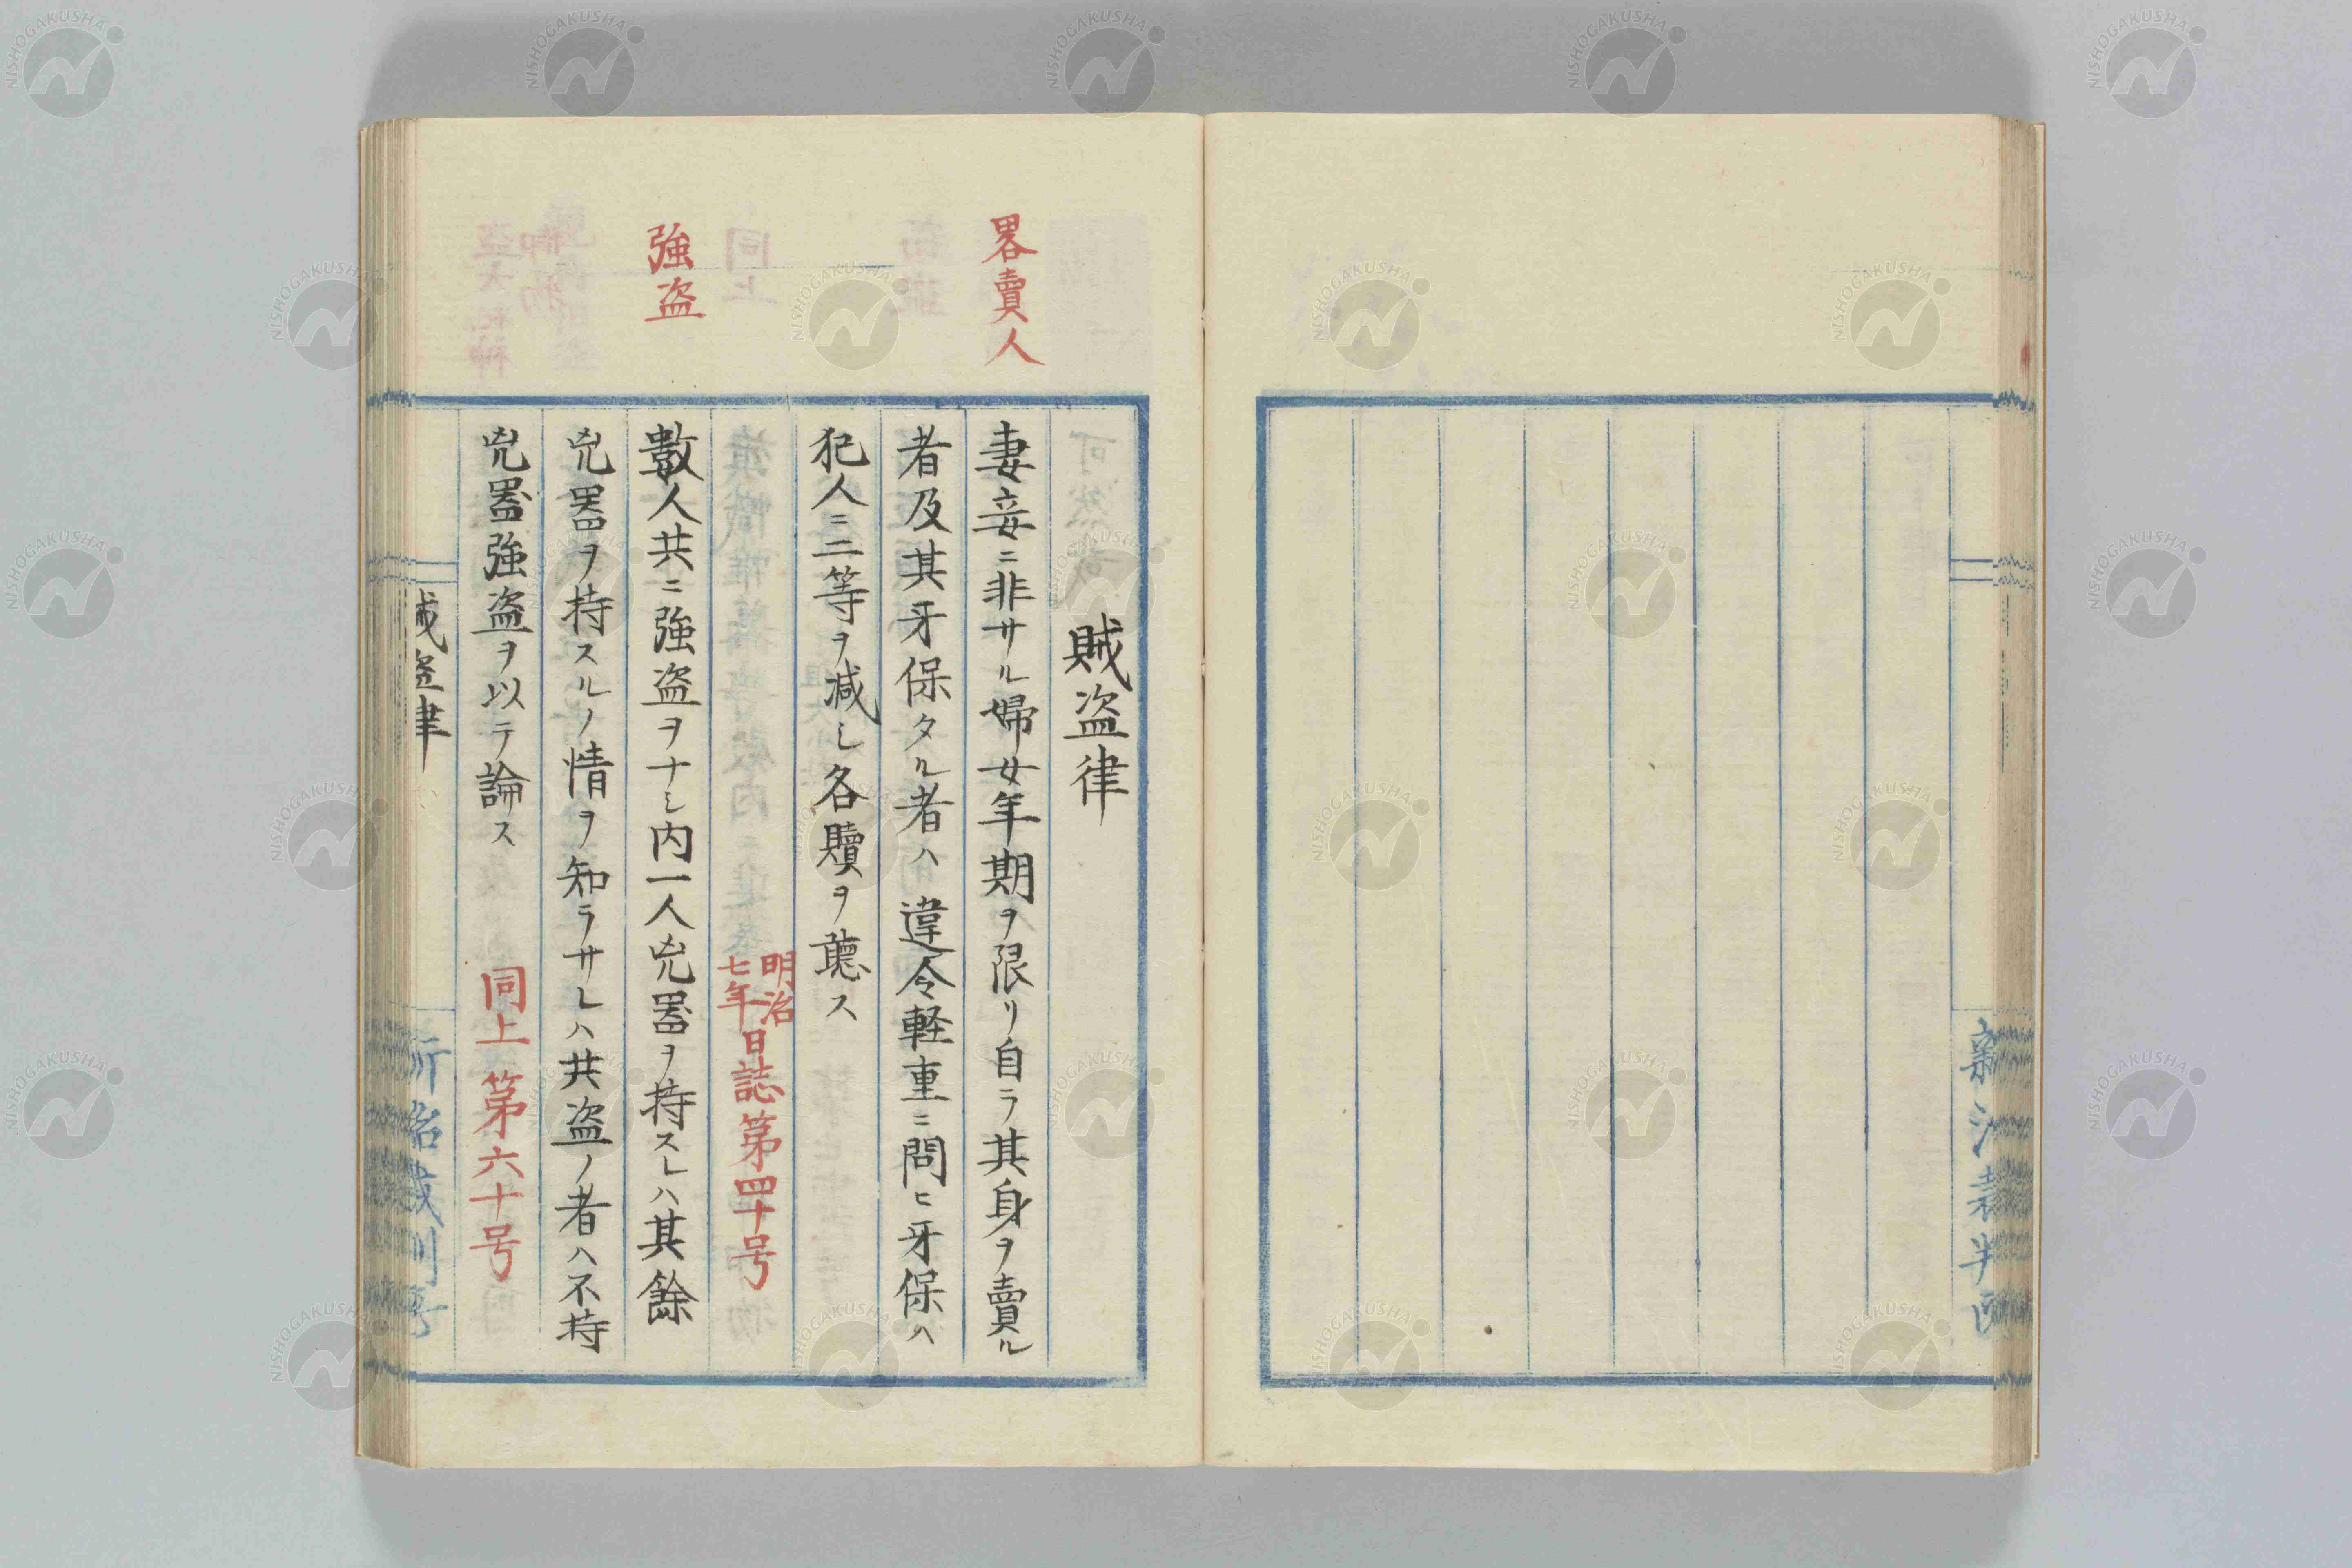 賊盗律
畧賣人
妻妾ニ非サル婦女年期ヲ限リ自ラ其身ヲ賣ル
者及其牙保タル者ハ違令軽重ニ問ヒ牙保ハ
犯人ニ一等ヲ減し各贖ヲ聴ス
明治七年日誌第四十号
強盗
數人共ニ強盗ヲナシ内一人兇器ヲ持スレハ其餘
兇器ヲ持スルノ情ヲ知ラサレハ共盗ノ者ハ不持
兇器強盗ヲ以テ論ス
同上第六十号
賊盗律
NISHOGAKUSHA